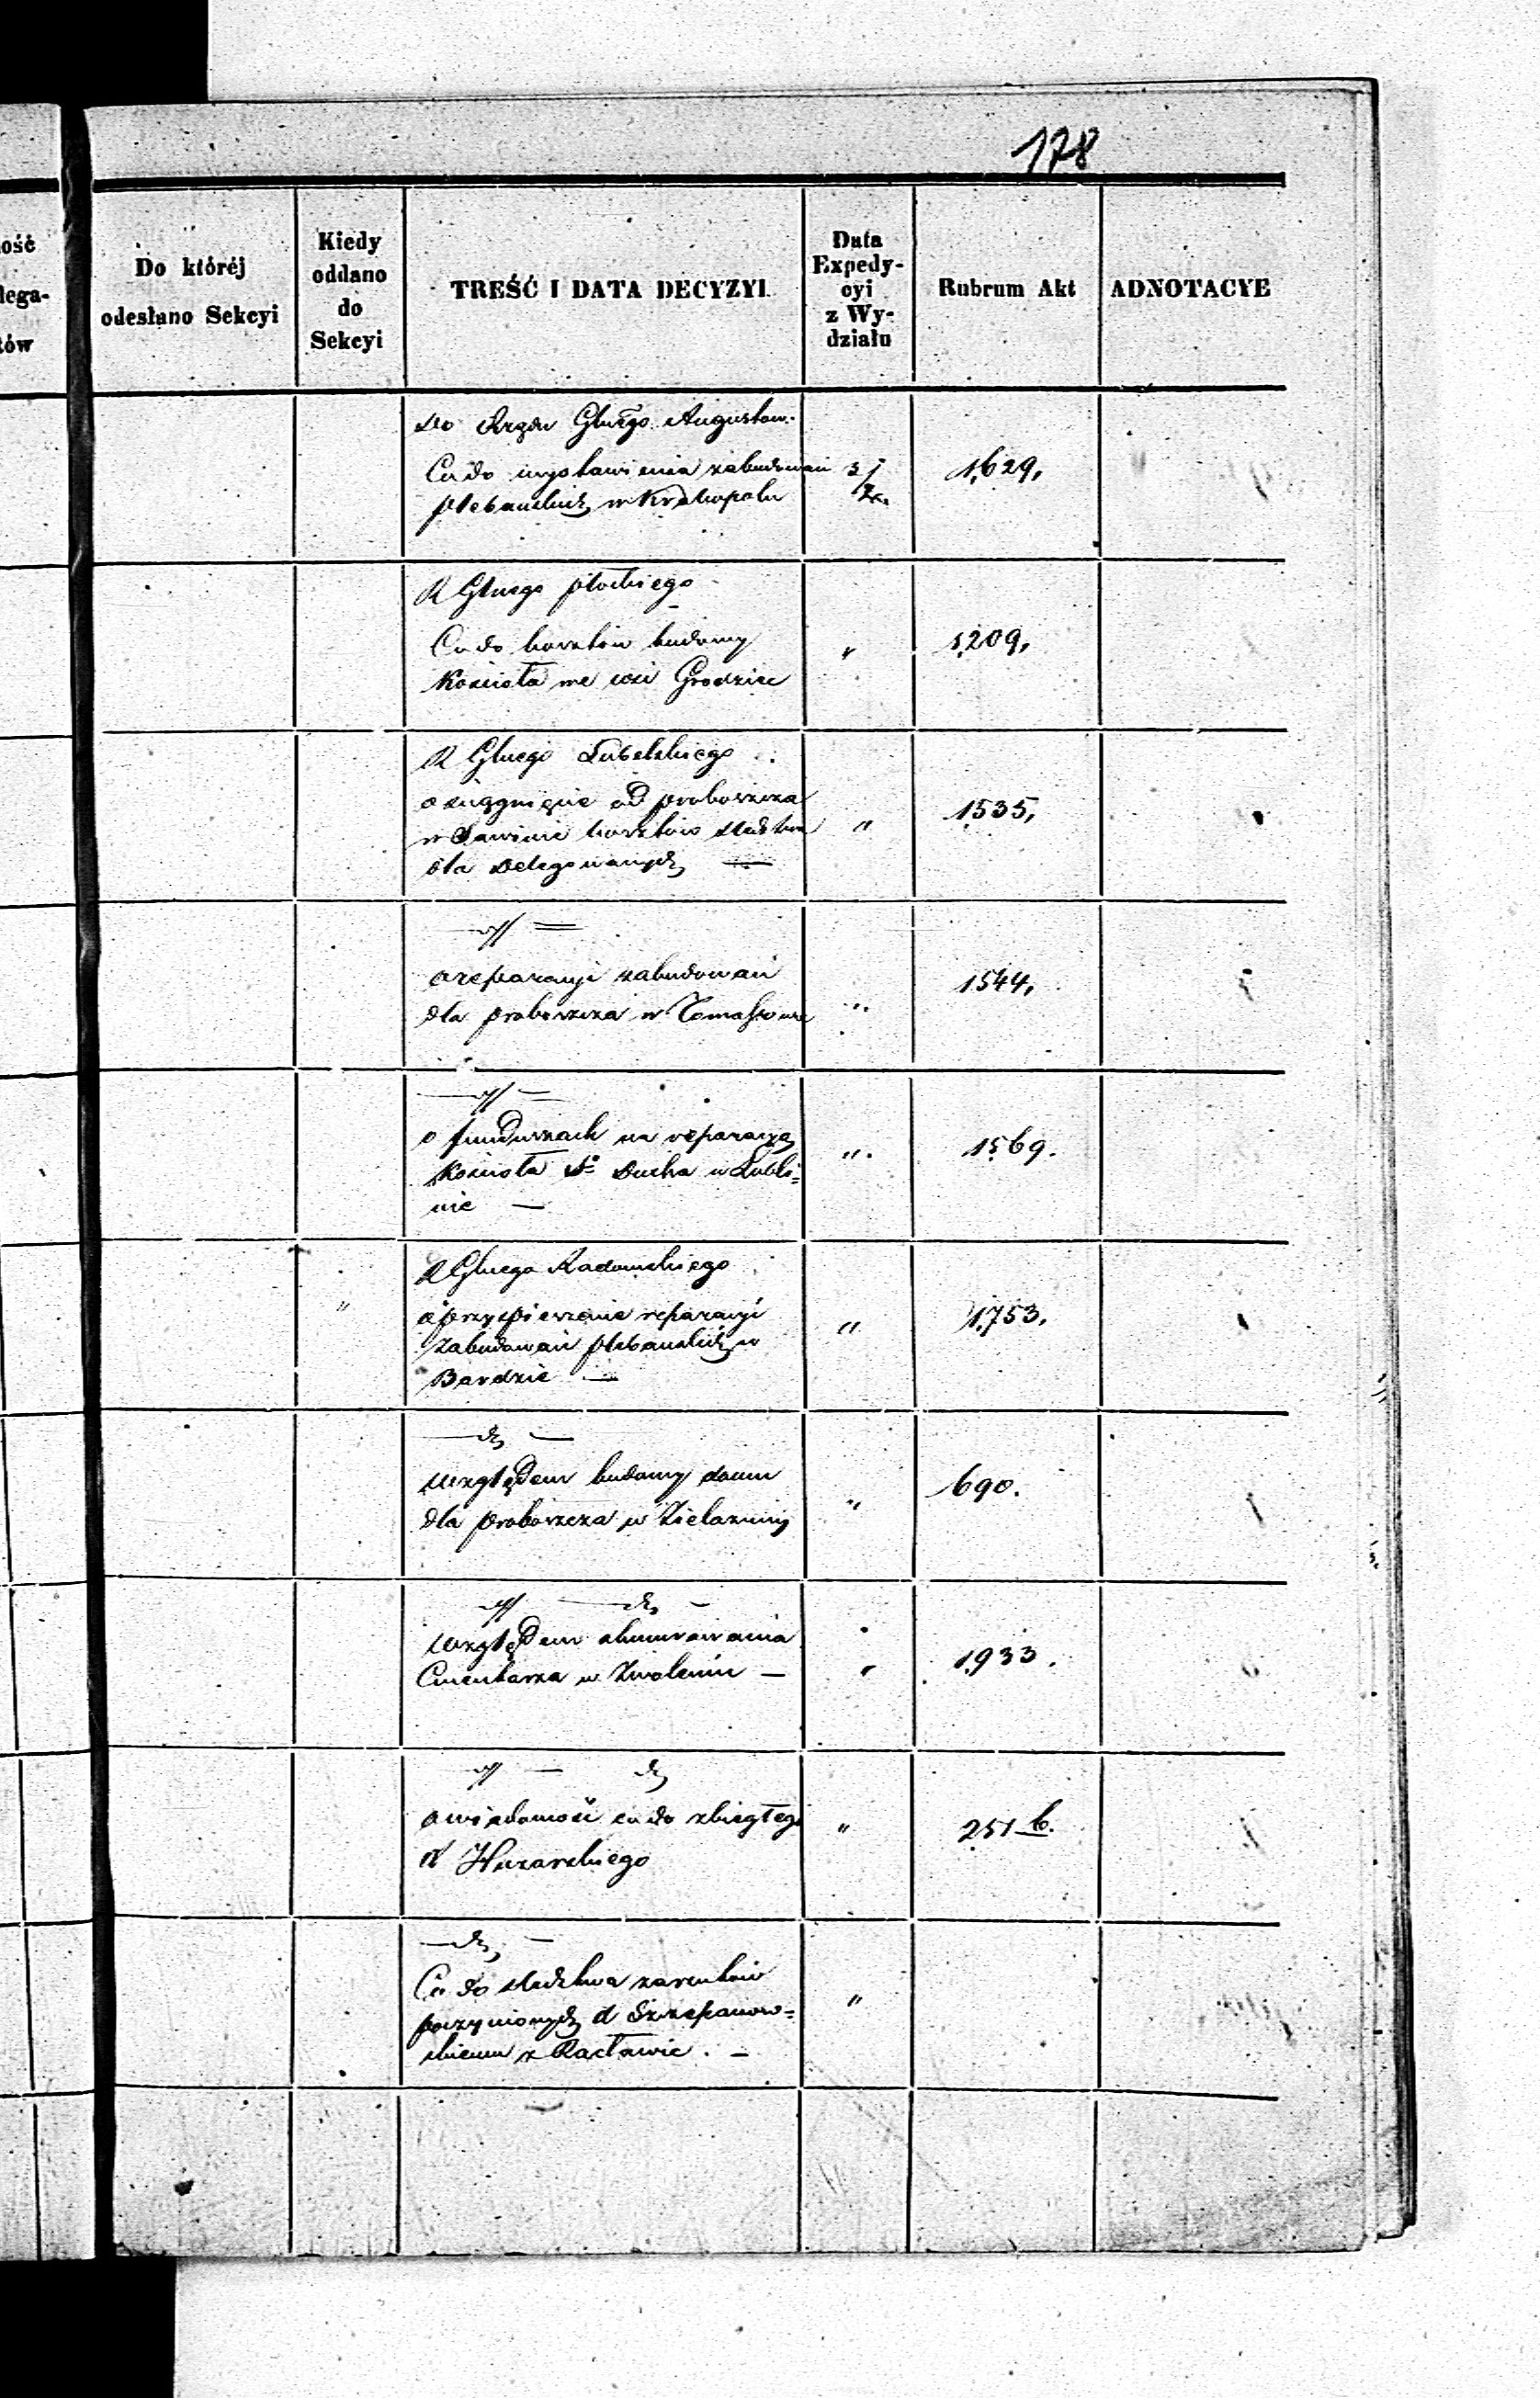 178
ość
lega-
tów
Do któréj
odesłano Sekcyi
Kiedy
oddano
do
Sekcyi
TREŚĆ I DATA DECYZYI
Data
Expedy-
cyi
z Wy-
działu
Rubrum Akt
ADNOTACYE
Do Rządu Głnego Augustow.
Co do wystawienia zabudowań
plebańskich w Krasnopolu
3/
1629,
R Głnego płockiego
Co do kosztów budowy
Kościoła we wsi Grodziec
"
1209,
R Głnego Lubelskiego
o ściągnięcie od proboszcza
w Sawinie kosztów śledztwa
dla Delegowanych —
"
1535,
o reparacyi zabudowań
dla proboszcza w Tomaszowie
"
1544,
o funduszach na reparacyą
Kościoła Sgo Ducha w Lubli=
nie —
"
1569.
R Głnego Radomskiego
o przyspieszenie reparacyi
zabudowań plebańskich w
Bardzie —
"
"
1753.
względem budowy domu
dla proboszcza w
"
690.
względem obmurowania
Cmentarza w Zwoleniu —
"
1933.
o wiadomość co do zbiegłego
X Huzarskiego
"
251 b.
Co do śledztwa zarzutów
poczynionych X Szczepanow=
skiemu z Racławic. —
"